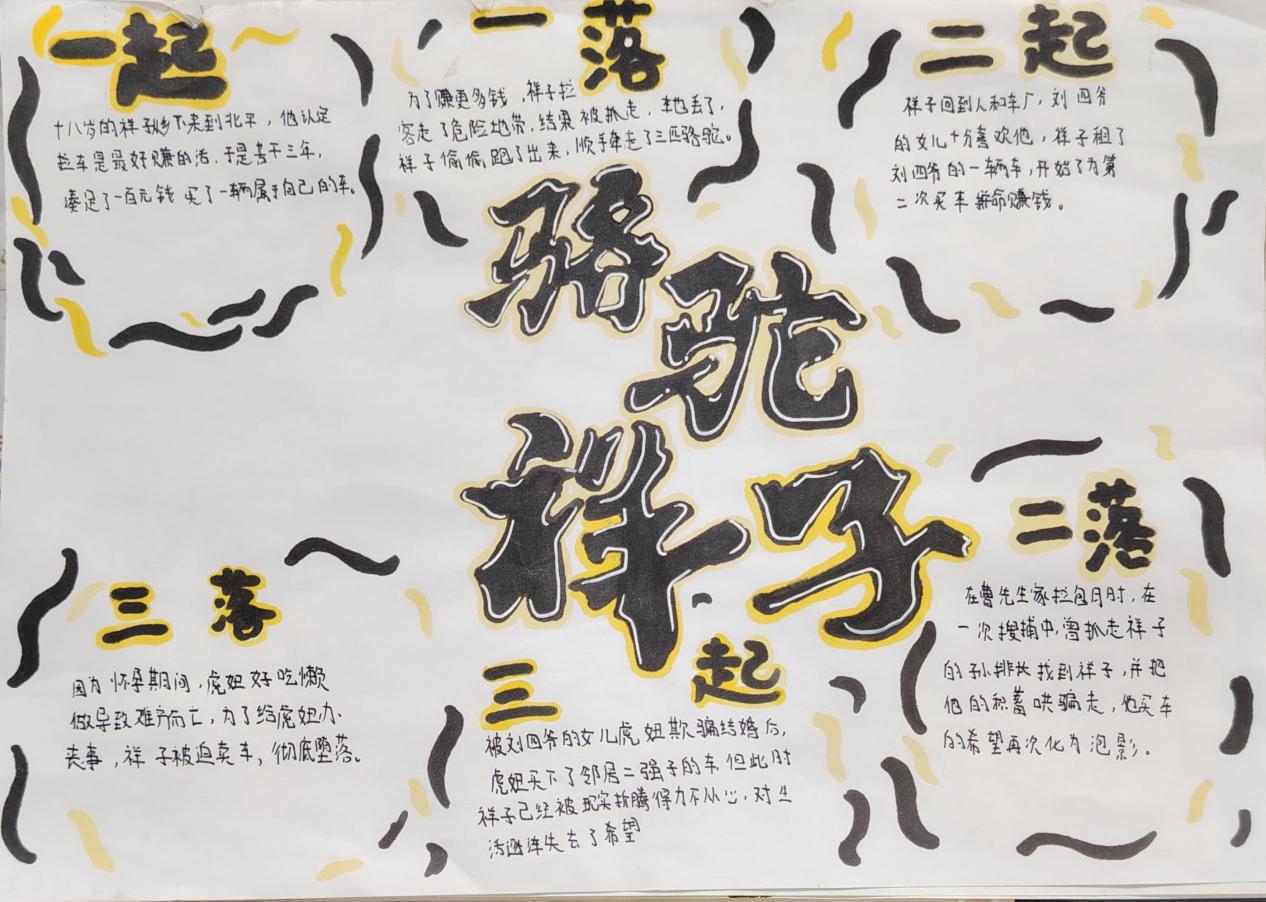 一起
十八岁的祥子从乡下来到北平，他认定
拉车是最好赚的活，于是苦干三年，
凑足了一百元钱 买了一辆属于自己的车。
一落
为了赚更多钱，祥子拉
客走了危险地带，结果被抓走，车也丢了，
祥子偷偷跑了出来，顺手牵走了三匹骆驼。
二起
祥子回到人和车厂，刘四爷
的女儿十分喜欢他，祥子租了
刘四爷的一辆车，开始了为第
二次买车拼命赚钱。
骆驼
祥子
二落
在曹先生家拉包月时，在
一次搜捕中，曾抓走祥子
的孙排长找到祥子，并把
他的积蓄哄骗走，他买车
的希望再次化为泡影。
三起
被刘四爷的女儿虎妞欺骗结婚后，
虎妞买下了邻居二强子的车，但此时
祥子已经被现实折腾得力不从心，对生
活逐渐失去了希望
三落
因为怀孕期间，虎妞好吃懒
做导致难产而亡，为了给虎妞办
丧事，祥子被迫卖车，彻底堕落。